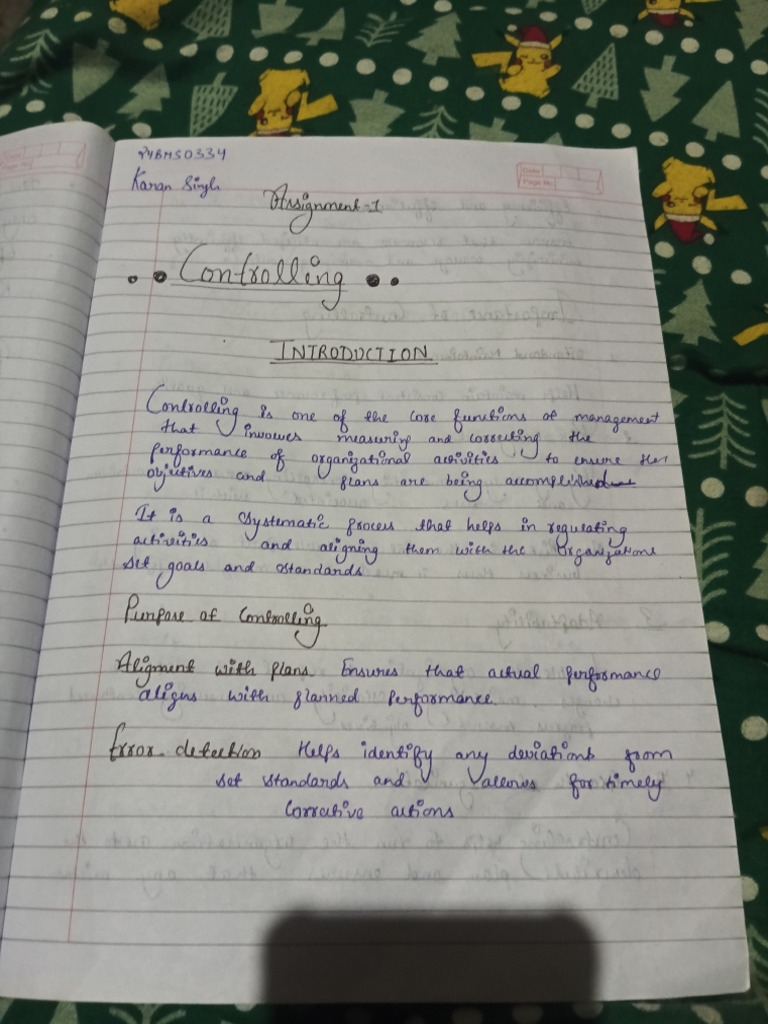 24BMS0334
Karan Singh
Date
Page No.
Assignment-1
Controlling
INTRODUCTION
Controlling is one of the core functions of management
that involves measuring and correcting the
performance of organizational activities to ensure that
objectives and plans are being accomplished
It is a systematic process that helps in regulating
activities and aligning them with the organizations
set goals and standards
Purpose of Controlling
Aligment with plans. Ensures that actual performance
aligns with planned performance.
Error detection Helps identify any deviations from
set standards and allows for timely
corrective actions